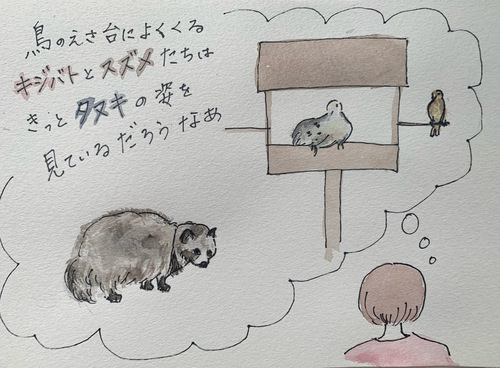 鳥のえさ台によくくる
キジバトとスズメたちは
きっとタヌキの姿を
見ているだろうなあ